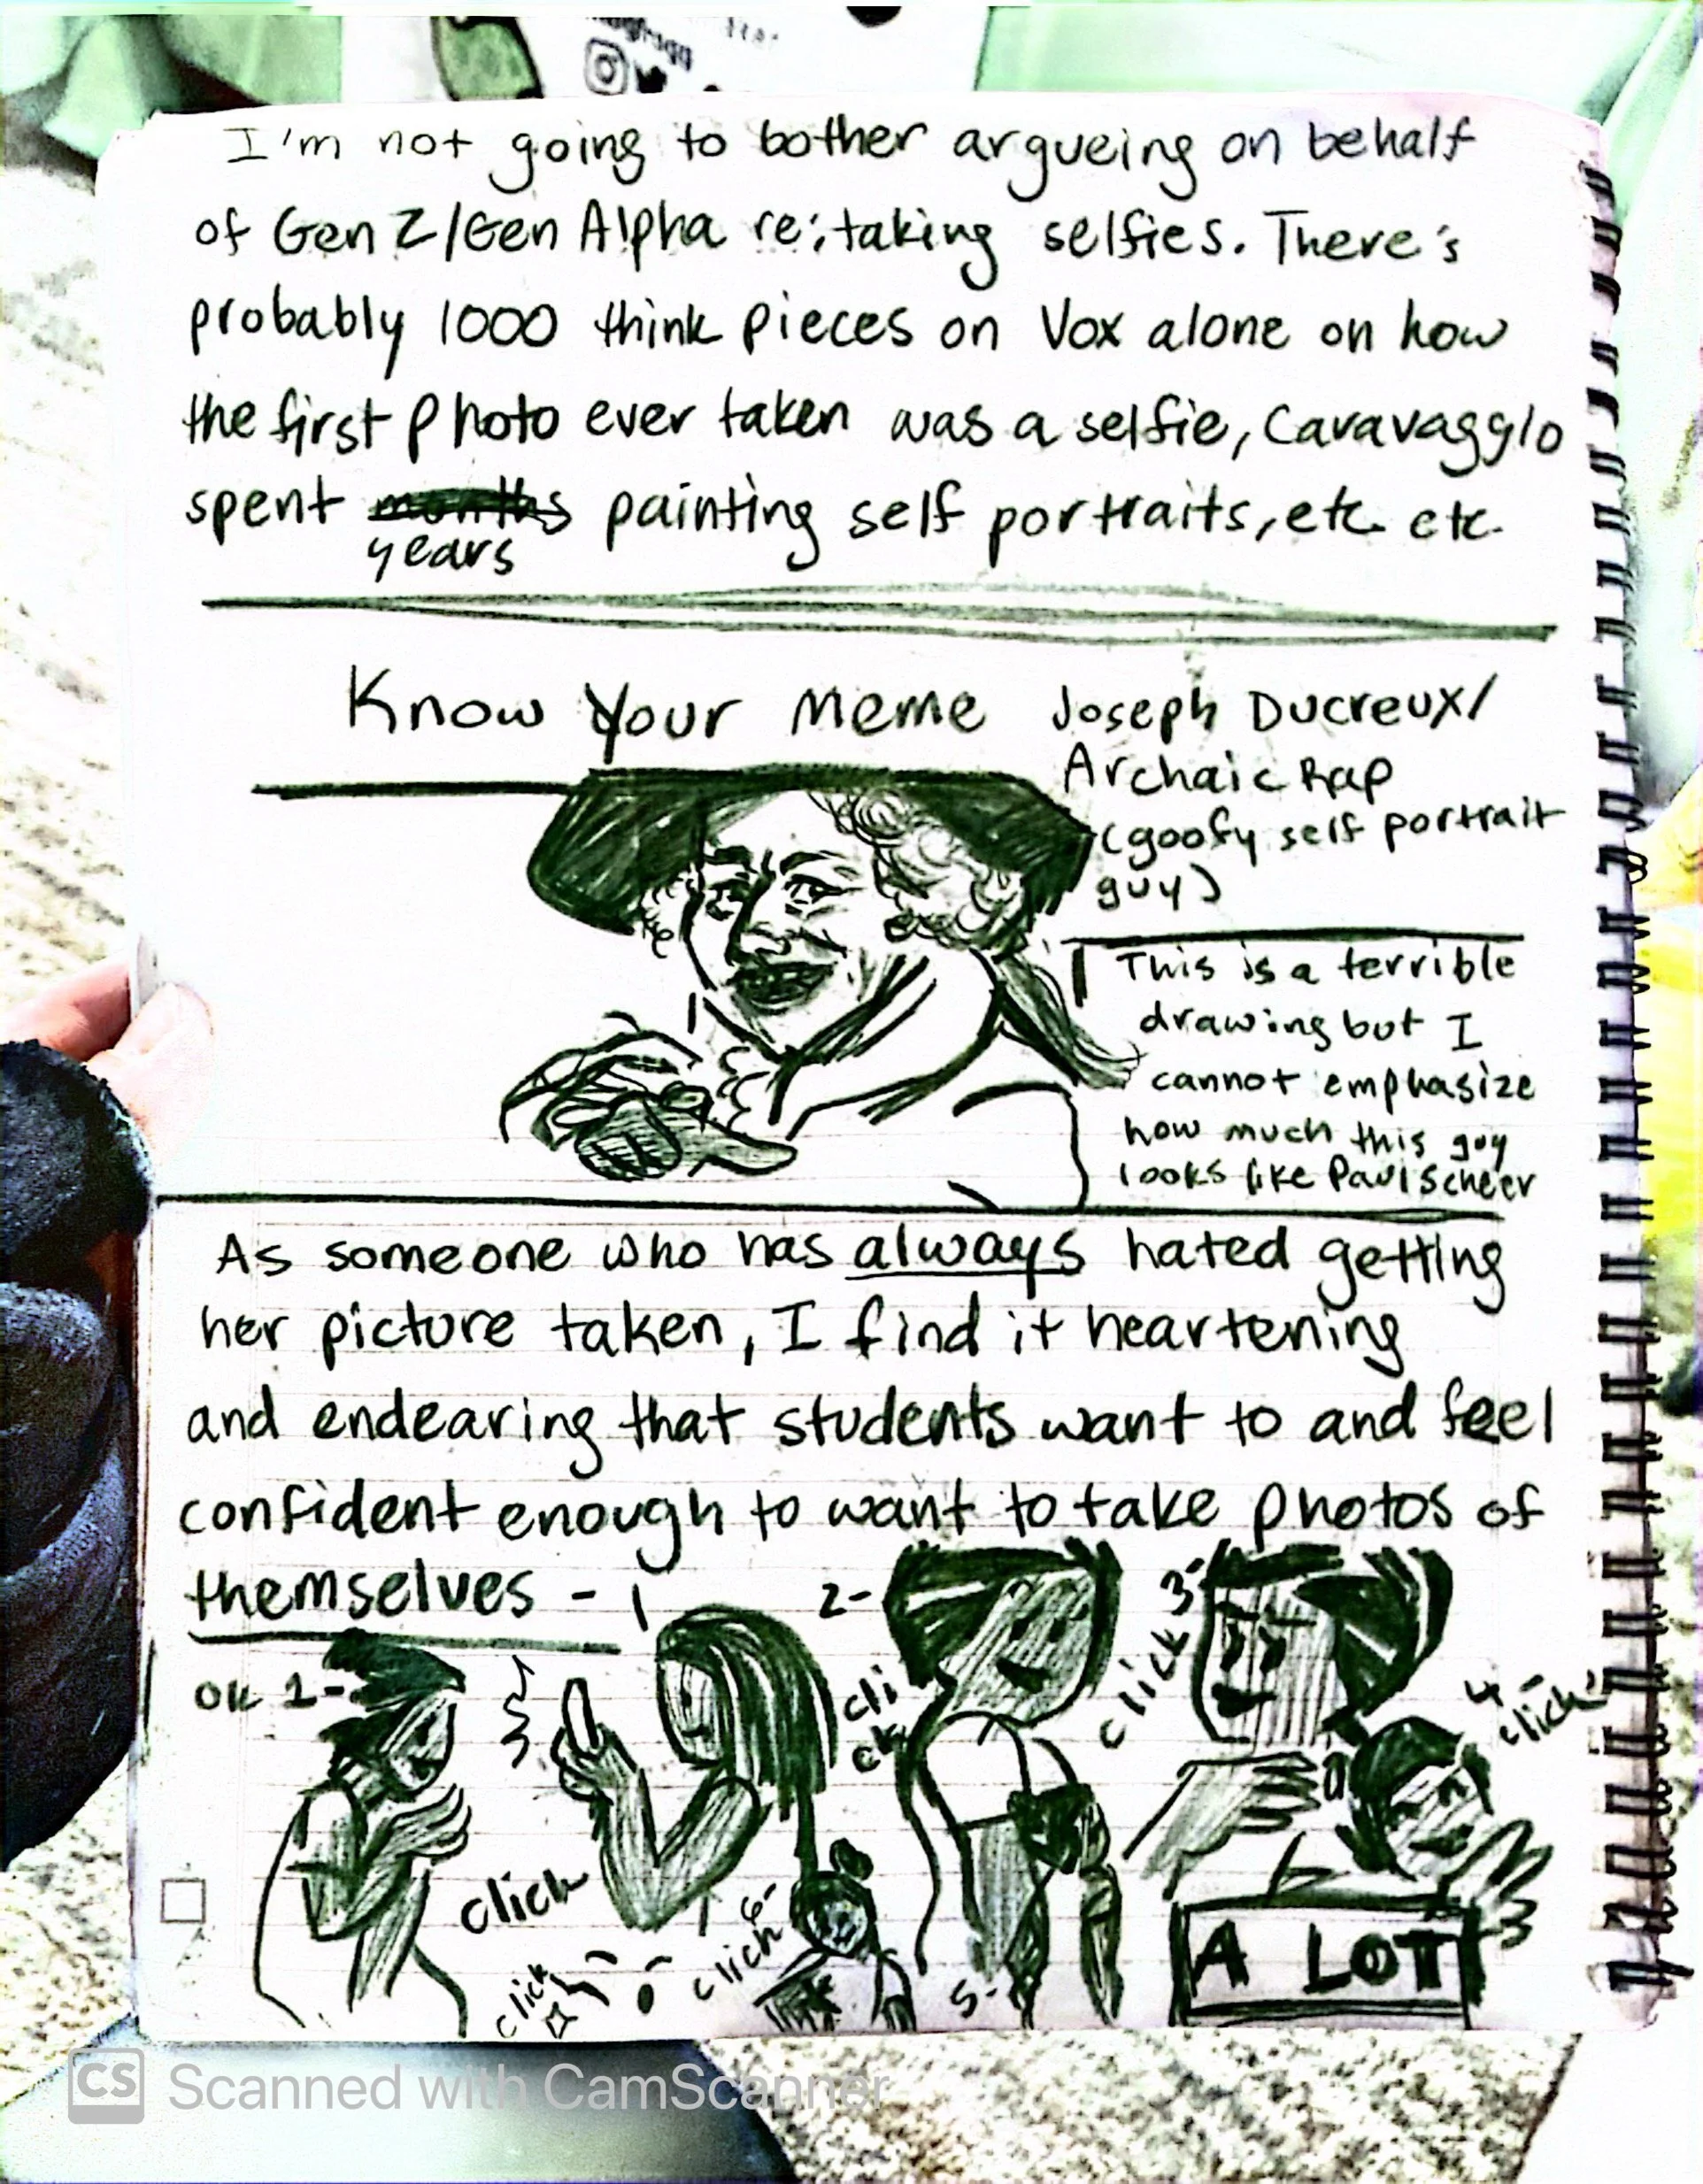 I'm not going to bother argueing on behalf
of Gen Z/Gen Alpha re: taking selfies. There's
probably 1000 think pieces on Vox alone on how
the first photo ever taken was a selfie, Caravagglo
spent months painting self portraits, etc. etc.
years
Know Your Meme
Joseph Ducreux/
Archaic Rap
(goofy self portrait
guy)
This is a terrible
drawing but I
cannot emphasize
how much this guy
looks like Paul Scheer
As someone who has always hated getting
her picture taken, I find it heartening
and endearing that students want to and feel
confident enough to want to take photos of
themselves -
OK 1-
click
2-
cli
ck
3-
click
4-
click
5-
6-
click
click
A LOT
CS Scanned with CamScanner